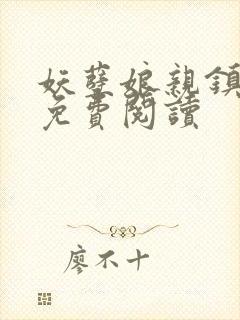 妖孽娘親鎮
免費閱讀
廖不十